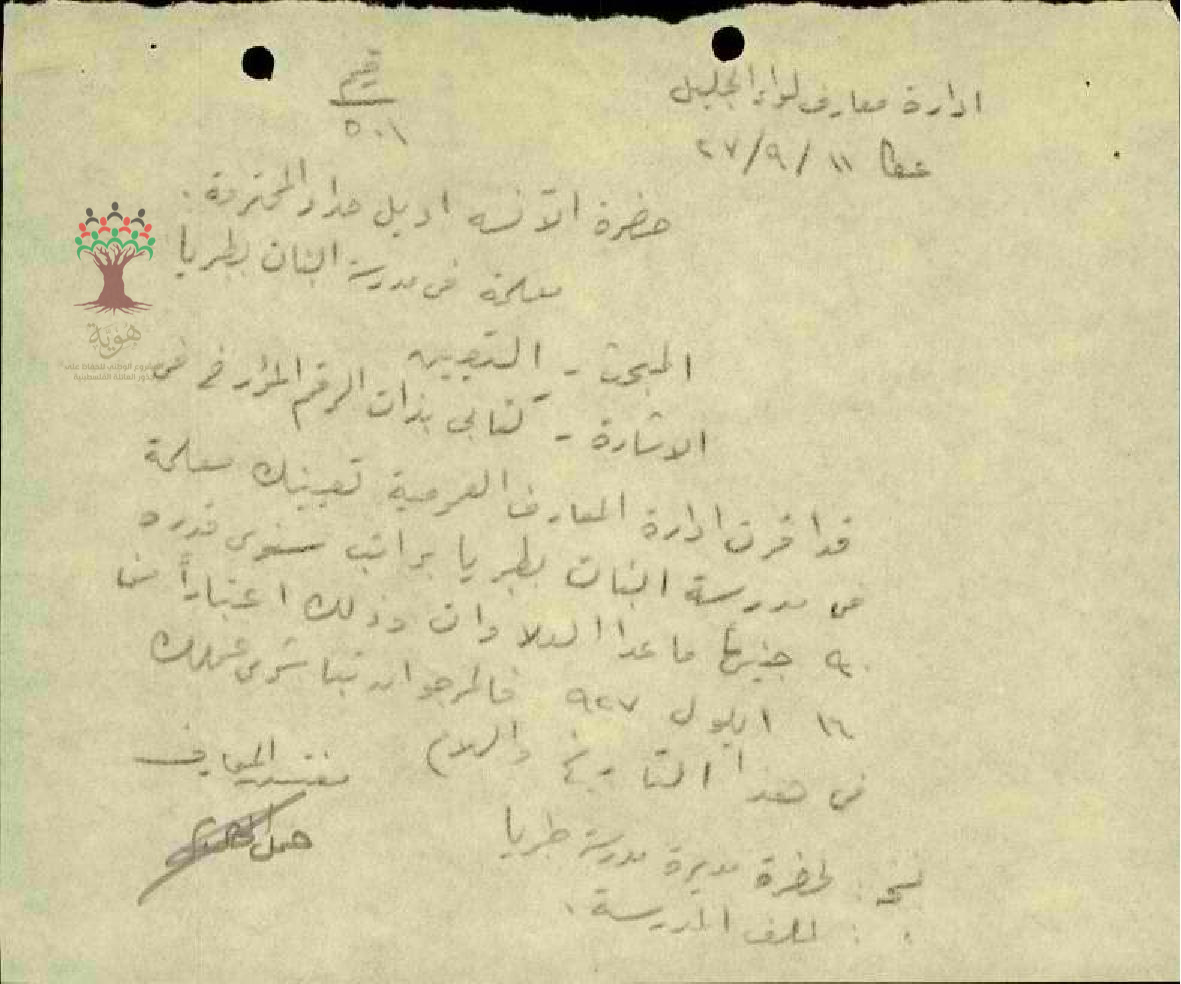 ادارة معارف لواء الجليل
عكا ١١/٩/٢٧
٥٠١
حضرة الآنسه اديل حداد المحترمة.
معلمة في مدرسة البنات بطبريا
المبحث - التعيين
الاشارة - كتابي بذات الرقم المؤرخ في
قد اقرت ادارة المعارف العمومية تعيينك معلمة
في مدرسة البنات بطبريا براتب سنوي قدره
جنيهاً ما عدا العلاوات وذلك اعتباراً من
١٦ ايلول ٩٢٧ فالمرجو ان تباشري عملك
في هذا التاريخ والسلام
مفتش المعارف
نسخة: لحضرة مديرة مدرسة طبريا
: لملف المدرسة.
هوية
المشروع الوطني للحفاظ على
جذور العائلة الفلسطينية